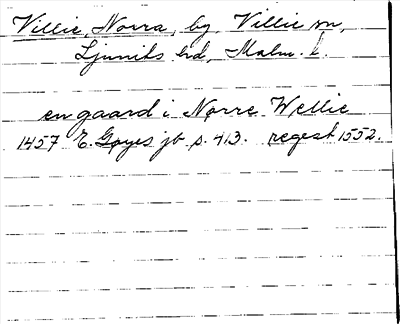 Villie, Norra, by, Villie sn,
Ljunits hd, Malm. l.
en gaard i Nørre Wellie
1457 E. Gøyes jb s. 413. regest 1552.